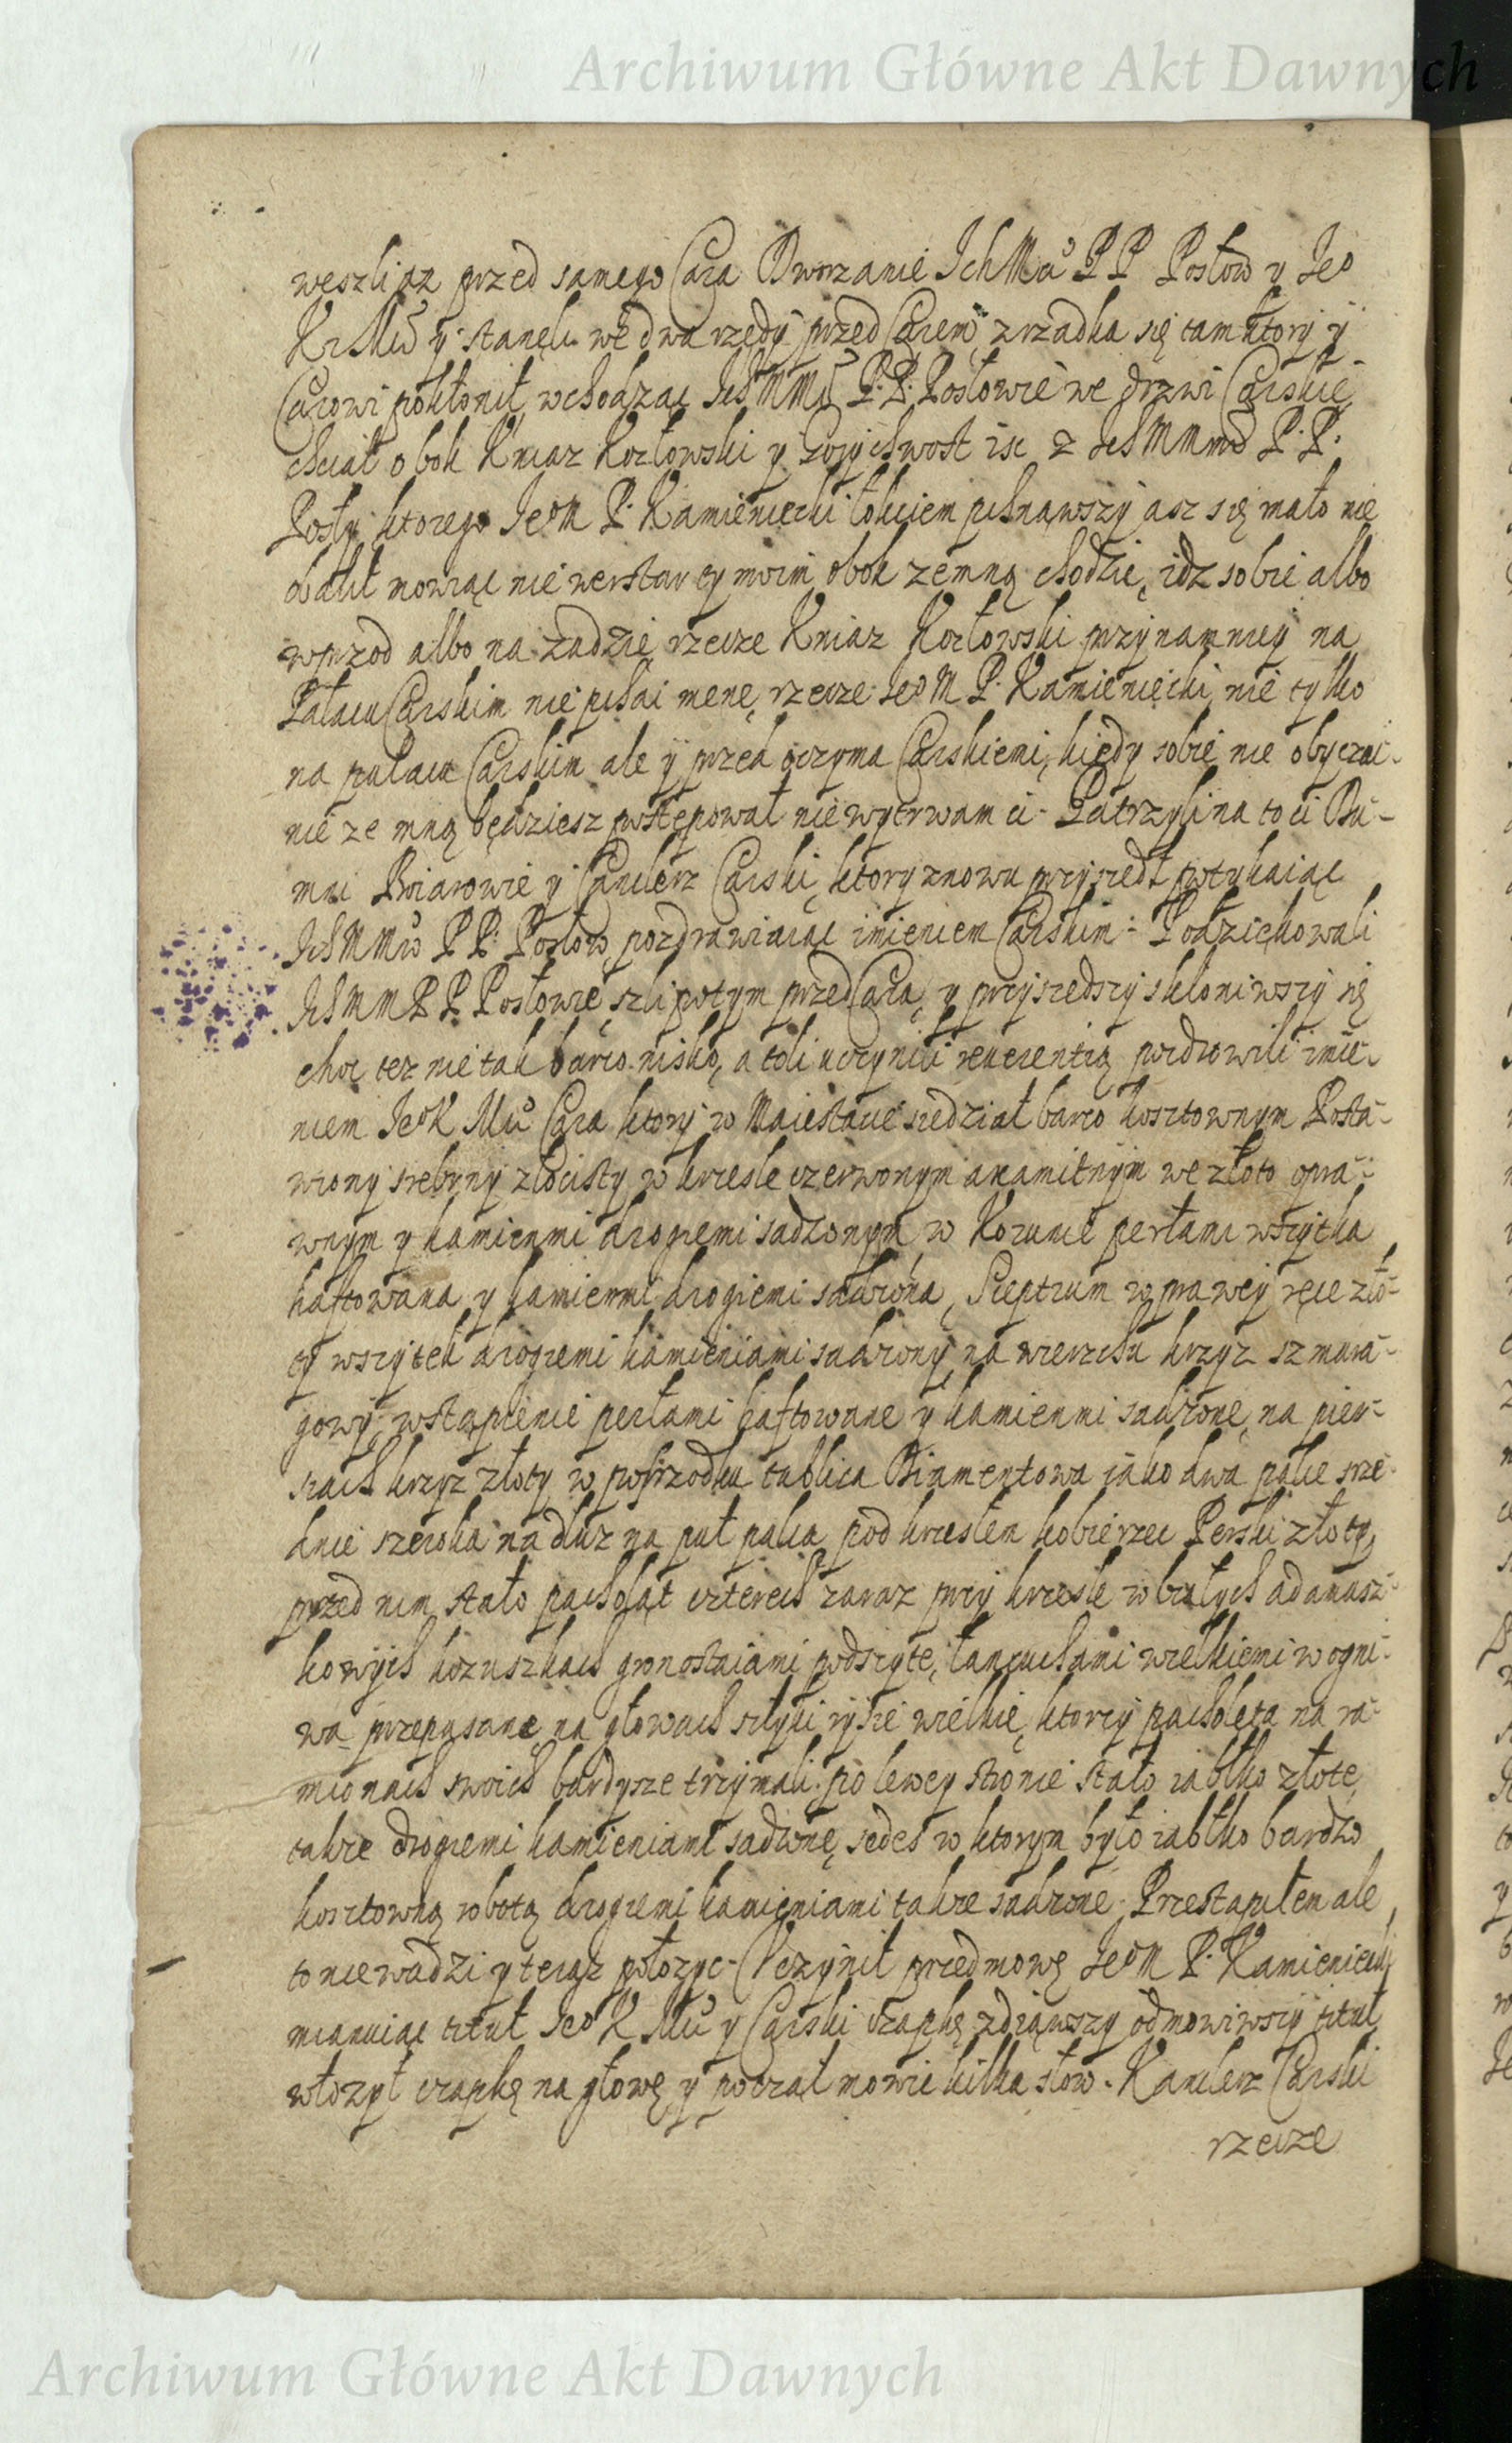 Archiwum Główne Akt Dawnych
weszli az przed samego Cara Dworzanie IchMći P P Posłow y Jeo
KrMći y stanęli we dwa rzędy przed Carem, zrzadka się tam ktory y
Carowi pokłonił, wchodząc IchMMći P. P. Posłowie we drzwi Carskie,
chciał obok Kniaz Kozłowski y iść z IchMMmi P. P.
Posły ktorego JeoM P. Kamieniecki łokciem pchnąwszy asz się mało nie
obalił mowiąc nie werstat ty moim obok zemną chodzić, idz sobie albo
wprzod albo na zadzie, rzecze Kniaz Kozłowski przynamniey na
Pałacu Carskim nie pchai mene, rzecze JeoM P. Kamieniecki, nie tylko
na pałacu Carskim ale y przed oczyma Carskiemi, kiedy sobie nie obyczai-
nie ze mną będziesz postępował nie wytrwam ci. Patrzyli na to ci Du-
mni Boiarowie y Canclerz Carski, ktory znowu przyszedł potykaiąc
IchMMćiw P P. Posłow, pozdrawiaiąc imieniem Carskim. Podziękowali
IchMM P P Posłowie, szli potym przed Cara, y przyszedszy skłoniwszy się
choć tez nie tak barzo nisko, a toli uczynili reverentią, pozdrowili imie-
niem JeoK Mći Cara ktory w Maiestacie siedział barzo kosztownym Posta-
wiony srebrny złocisty, w krzesle czerwonym axamitnym we złoto opra-
wnym y kamienmi drogiemi sadzonym, w Koronie perłami wszytka
haftowana y kamienmi drogiemi sadzona, Sceptrum w prawey ręce zło-
ty wszytek drogiemi kamieniami sadzony, na wierzchu krzyz szmara-
gowy, wstąpienie perłami haftowane y kamienmi sadzone, na pier-
siach krzyz złoty w posrzodku tablica Diamentowa iako dwa palce srze-
dnie szeroka na dłuz na puł palca, pod krzesłem kobierzec Perski złoty,
przed nim stało pacholąt czterech zaraz przy krzesle w białych adamasz-
kowych kozuszkach gronostaiami podszyte, łancuchami wielkiemi w ogni-
wa przepasane na głowach szłyki rysie wielkie, ktorzy pacholęta na ra-
mionach swoich bardysze trzymali. po lewey stronie stało iabłko złote
takze drogiemi kamieniami sadzone, sedes w ktorym było iabłko bardzo
kosztowną robotą drogiemi kamieniami takze sadzone. Przestąpiłem ale
to nie wadzi y teraz połozyc. Uczynił przedmowę JeoM P. Kamieniecki
mianuiąc tituł JeoK Mći y Carski czapkę zdiąwszy odmowiwszy tituł
włozył czapkę na głowę y począł mowić kilka słow. Kanclerz Carski
rzecze
Archiwum Główne Akt Dawnych